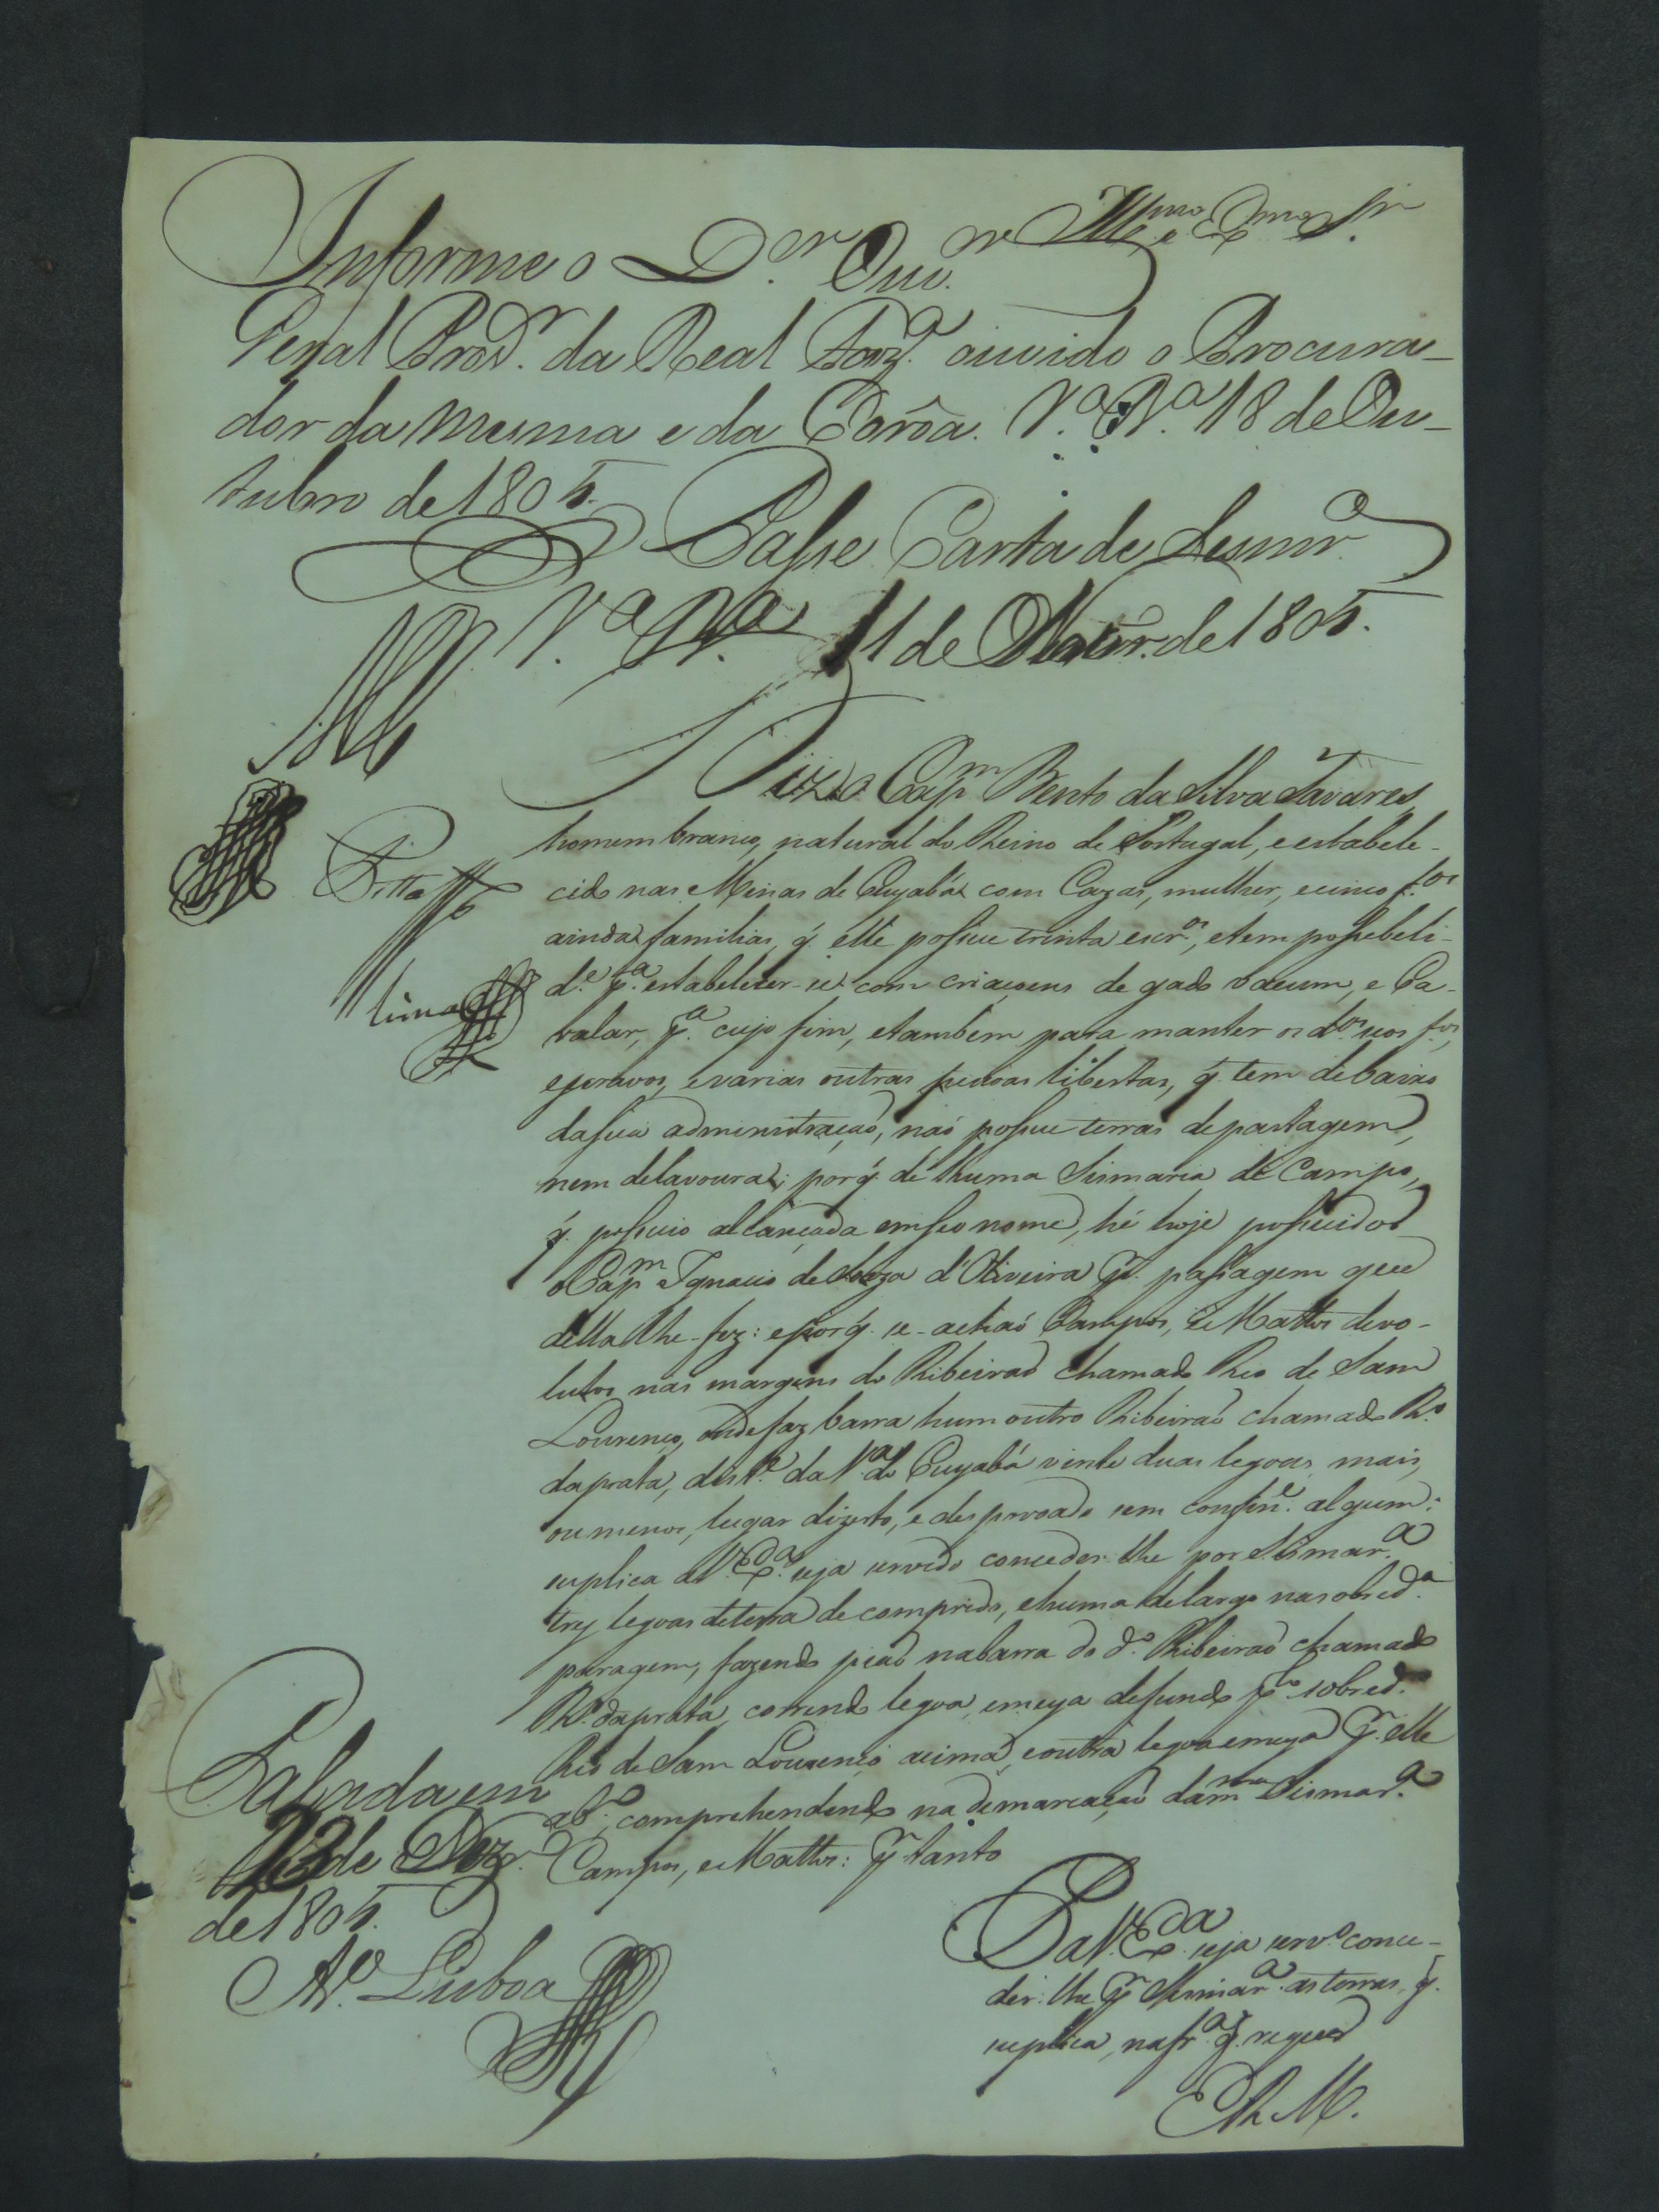 Illmo e Exmo Sr.
Informe o D.or Ouv.or
Geral Prov.r da Real Faz.a ouvido o Procura-
dor da mesma e da Corôa. V.a B.a 18 de Ou-
tubro de 1805.
Passe Carta de Sesmr.a
V.a B.a 11 de Novbr. de 1805.
Diz o Cap.m Bento da Silva Tavares,
homem branco, natural do Reino de Portugal, e estabele-
cido nas Minas do Cuyabá com Cazas, mulher, e cinco f.os
ainda familias, q̃ elle possue trinta escr.os, e tem possebeli-
d.e p.a estabelecer-se com criaçoens de gado vacum, e Ca-
valar, p.a cujo fim, e tambem para manter os d.os seos f.os,
escravos, e varias outras pessoas libertas, q̃ tem debaixo
da sua administraçaõ, naõ possue terras de pastagem,
nem de lavoura; por q̃ de huma Sismaria de Campo,
q̃ possuio alcançada em seo nome, hé hoje possuidor
o Cap.m Ignacio de Souza d'Oliveira p.r passagem que
della lhe-fez: e por q̃ se-achaõ Campos, e Mattos devo-
lutos nas margens do Ribeiraõ chamado Rio de Sam
Lourenço, onde faz barra hum outro Ribeiraõ chamado R.o
da prata, dist.e da V.a do Cuyabá vinte duas legoas mais,
ou menos, lugar dizerto, e despovoado sem confin.e algum:
suplica a V. Ex.a seja servido conceder-lhe por Sismar.a
trez legoas de terra de comprido, e huma de largo na sobred.a
paragem, fazendo piaõ na barra do d.o Ribeiraõ chamado
R.o da prata, correndo legoa, e meya de fundo p.lo sobred.o
Rio de Sam Lourenço acima, e outra legoa e meya p.r elle
ab.o; comprehendendo na demarcaçaõ da m.ma Sismar.a
Campos, e Mattos: p.r tanto
P. a V. Ex.a seja serv.o conce-
der-lhe p.r Sismar.a as terras, q̃
suplica, na fr.a q̃ requer
E R. M.
Pitta
Lima
Passada em
23 de Dezr.o
de 1805.
Lisboa